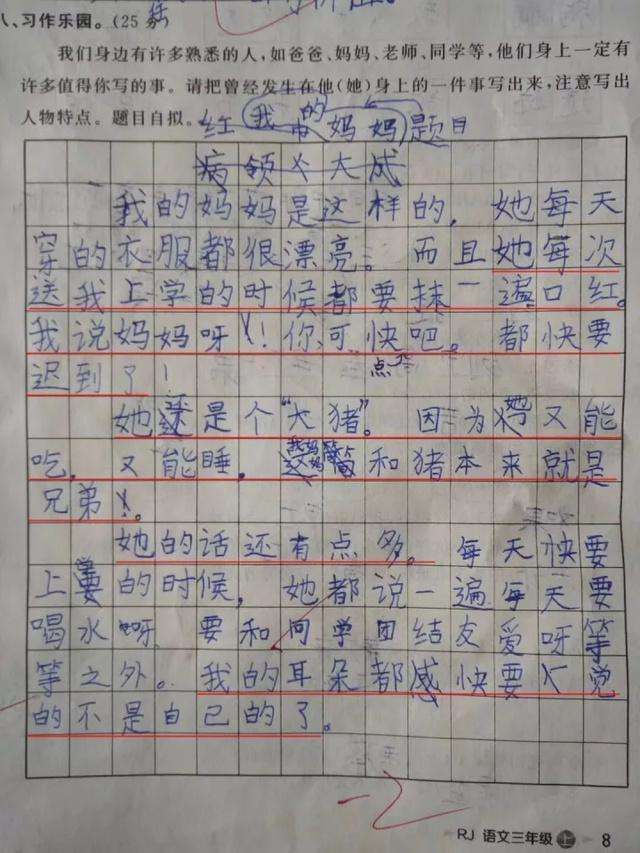 八、习作乐园。(25 分)
我们身边有许多熟悉的人,如爸爸、妈妈、老师、同学等,他们身上一定有
许多值得你写的事。请把曾经发生在他(她)身上的一件事写出来,注意写出
人物特点。题目自拟。
红 我的妈妈 题目
病领 大成
我的妈妈是这样的,她每天
穿的衣服都很漂亮。而且她每次
送我上学的时候都要抹一遍口红。
我说妈妈呀!你可快点吧。都快要
迟到了!
她还是个“大猪”。因为她又能
吃,又能睡,我妈妈简直和猪本来就是
兄弟。
她的话还有点多。每天快要
上学的时候,她都说一遍每天要
喝水呀 要和同学团结友爱呀等
等之外。我的耳朵都感快要 觉
的不是自己的了。
-2
RJ 语文三年级 上 8